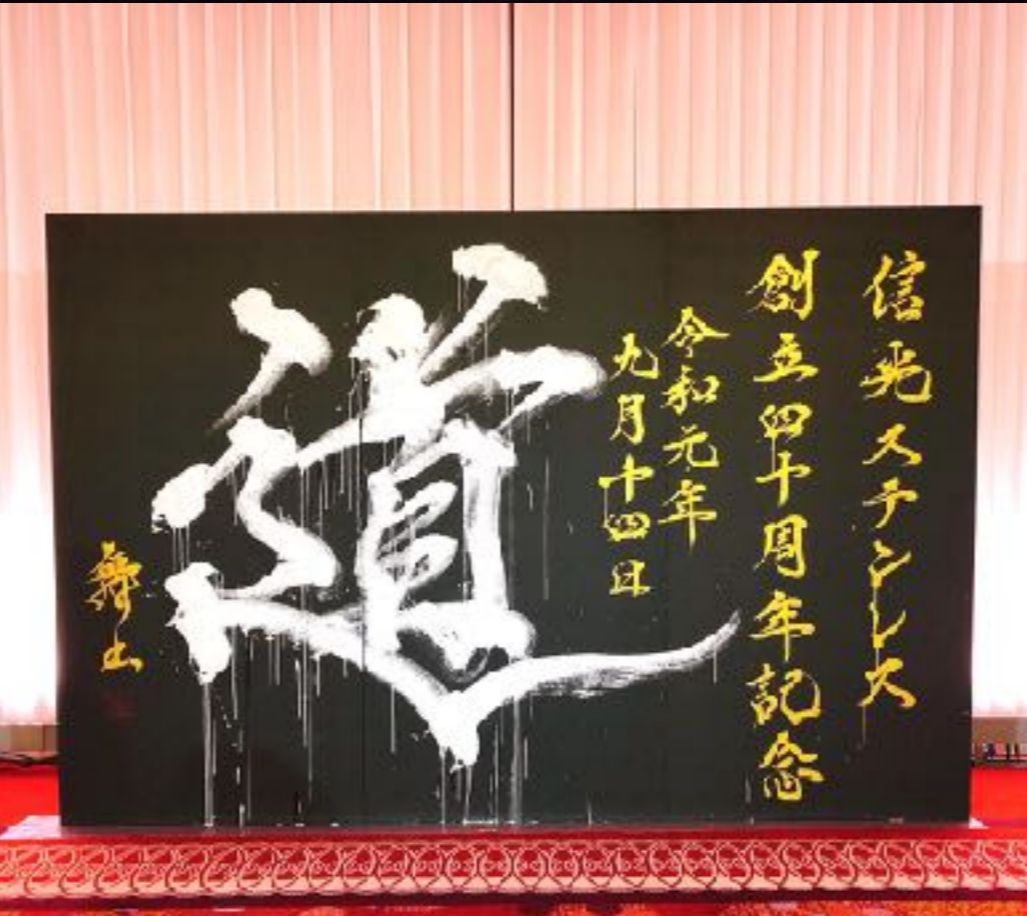 信光ステンレス
創立四十周年記念
令和元年
九月十四日
道